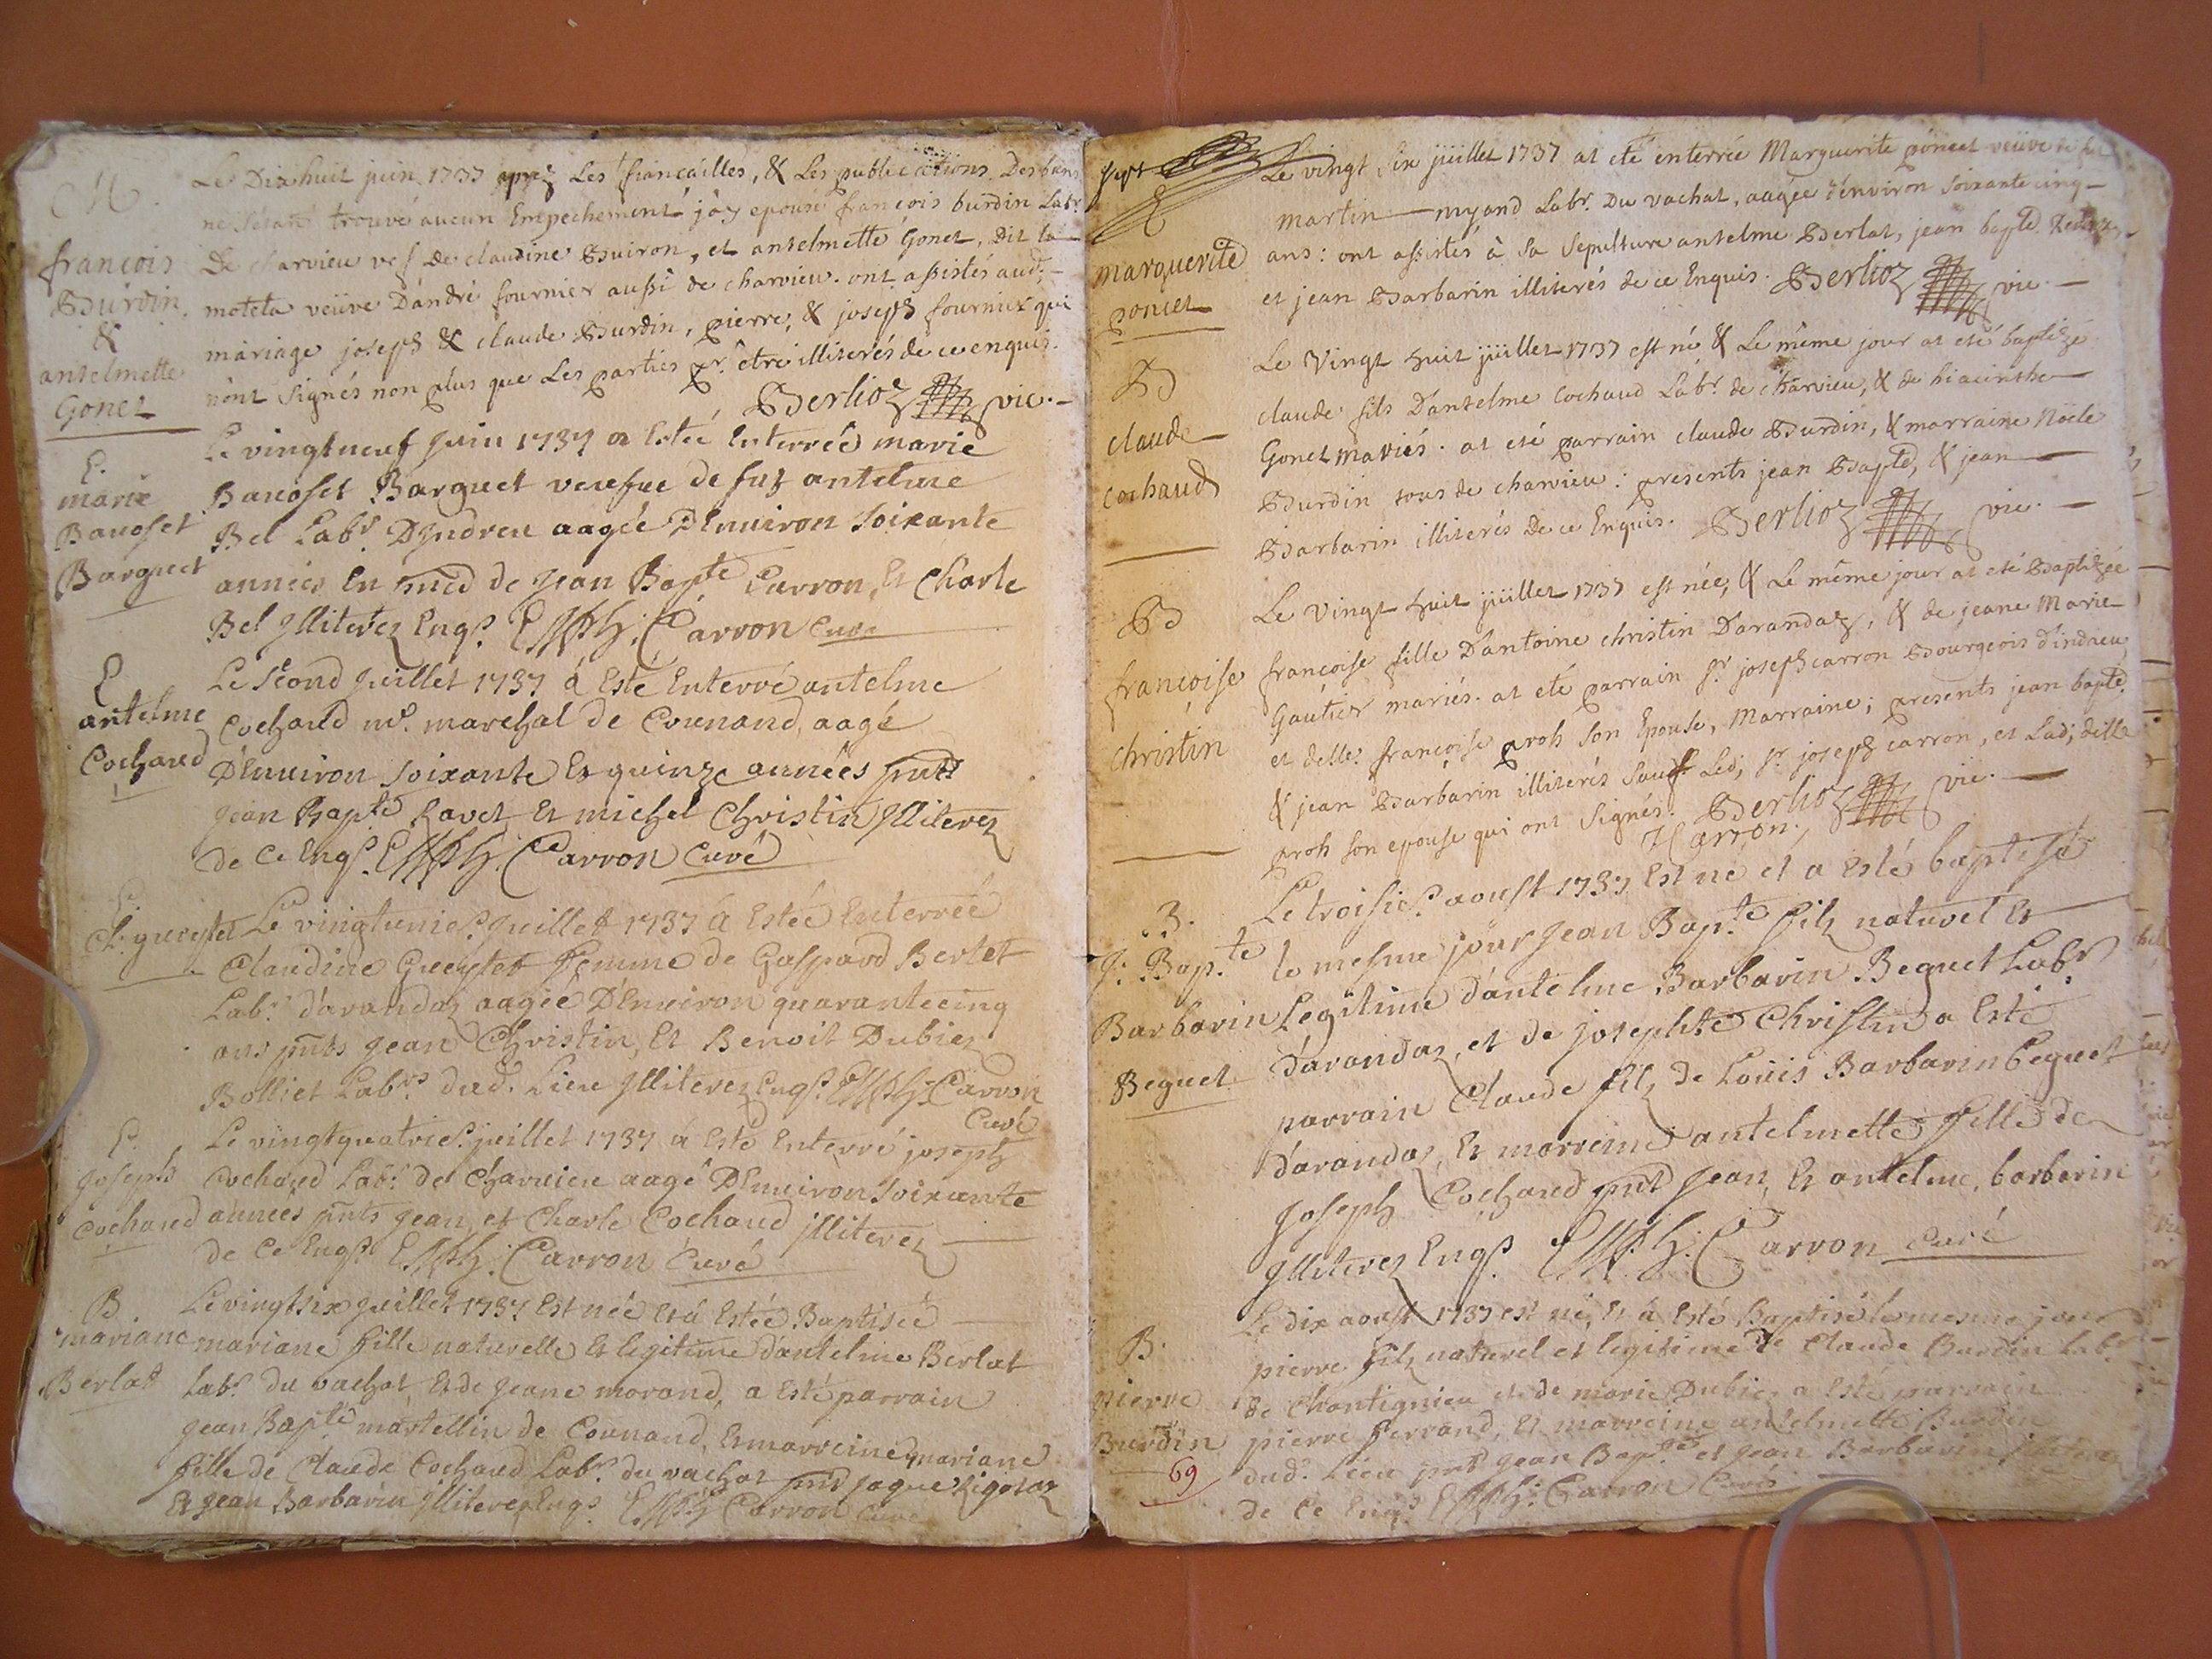 M.
françois
Burdin,
&
antelmette
Gonet
Le Dixhuit juin 1737 aprez Les fiançailles, & Les publications Des bans
ne s'étant trouvé aucun Empechement j'ay epousé françois burdin Labr.
De charvieu vef De claudine Buiron, et antelmette Gonet, Dit la
moteta veüve D'andré fournier aussi de charvieu. ont assistés aud;
mariage joseph & claude Burdin, pierre, & joseph fournier qui
n'ont Signés non plus que Les parties pr. être illiterés de ce enquis.
Berlioz vic.
E.
marie
Bauoset
Barquet
Le vingtneuf Juin 1737 a Esteé Enterreé marie
Bauoset Barquet veuefue de fuz antelme
Bel Labr. D'Yndrieu aagée D'Enuiron soixante
années En pnce de Jean Bapte. Carron, Et Charle
Bel Jlliterez Enqs. Carron Curé
E
antelme
Cochaud
Le Second Juillet 1737 á Esté Enterré antelme
Cochaud me. marechal de Counand, aagé
D'Enuiron soixante Et quinze années pnts
Jean Bapte Ravet, Et michel Christin Jlliterez
de Ce Enqs. Carron Curé
E.
Cl: gueytet
Le vingtunies. Juillet 1737 á Esteé Enterreé
Claudine Gueytet femme de Gaspard Berlet
Labr. d'arandaz aagée D'Enuiron quarantecinq
ans pnts Jean Christin, Et Benoit Dubiez
Bolliet Labrs. dud. Lieu Jlliterez Enqs. Carron
Curé
E.
Joseph
Cochaud
Le vingtquatries. juillet 1737 á Esté Enterré joseph
Cochaud Labr. de Charuieu aagé D'Enuiron soixante
années pnts Jean, et Charle Cochaud jlliterez
de Ce Enqs. Carron Curé
B.
mariane
Berlat
Le vingtsix Juillet 1737 Est née Et á Esteé Baptiseé
mariane fille naturelle Et legitime d'antelme Berlat
Labr. du vachat, Et de Jeane morand, a Esté parrain
Jean Bapte martellin de Counand, Et marreine mariane
fille de Claude Cochaud Labr. du vachat pnts jaque Rigotaz
Et Jean Barbarin Jlliterez Enqs. Carron Curé
Marguerite
poncet
Le vingt Six juillet 1737 at eté enterrée Marguerite poncet veüve de fut
martin myand Labr. Du vachat, aagée d'environ soixantecinq
ans: ont assistés à sa sepulture antelme Berlat, jean bapte.
et jean Barbarin illiterés de ce Enquis. Berlioz vic.
B
claude
cochaud
Le Vingt huit juillet 1737 est né & Le même jour at eté baptizé
claude fils D'antelme Cochaud Labr. de charvieu, & de hiacinthe
Gonet mariés. at eté parrain claude Burdin, & marraine Noële
Burdin tous de charvieu: presents jean Bapte, & jean
Barbarin illiterés De ce Enquis. Berlioz vic.
B
françoise
christin
Le Vingt huit juillet 1737 est née, & Le même jour at eté Baptizée
françoise fille D'antoine christin D'arandaz, & de jeane Marie
Gautier mariés. at eté parrain sr. joseph carron Bourgeois d'indrieu,
et delle. françoise proh son Epouse, Marraine; presents jean bapte.
& jean Barbarin illiterés Sauf Led; sr. joseph carron, et Lad; delle
proh son epouse qui ont Signés. Berlioz vic.
Carron.
B.
J: Bapte.
Barbarin
Beguet
Le troisies. aoust 1737 Est né et a Esté baptisé
le mesme jour Jean Bapte. filz naturel Et
Legitime d'antelme Barbarin Beguet Labr.
d'arandaz, et de josephte Christin a Esté
parrain Claude filz de Loüis Barbarin beguet
d'arandaz, Et marreine antelmette fille de
Joseph Cochaud pnts Jean, Et antelme, barbarin
Jlliterez Enqs. Carron Curé
B.
pierre
Burdin
69
Le dix aoust 1737 est né, Et á Esté Baptisé le mesme jour
pierre filz naturel et legitime de Claude Burdin Labr.
de Chantignieu et de marie Dubiez a Esté parrain
pierre ferrand, Et marreine antelmette Burdin
dud. Lieu pnts Jean Bapte. et Jean Barbarin jlliterez
de Ce Enqs. Carron Curé